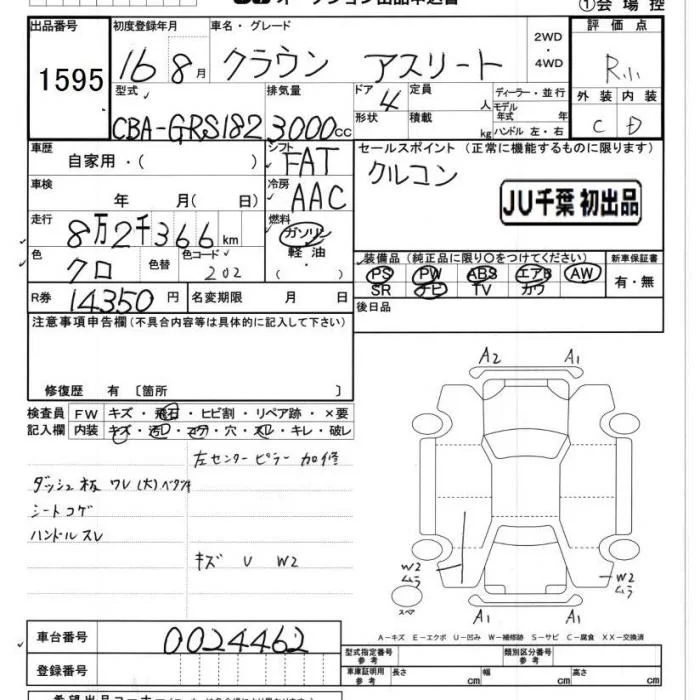 オークション出品申込書
①会場控
出品番号
1595
初度登録年月
16 8月
車名・グレード
クラウン アスリート
2WD
・
4WD
評価点
R小
型式
CBA-GRS182
排気量
3000cc
ドア
4
定員
人
形状
積載
kg
ディーラー・並行
モデル
年式 年
ハンドル 左・右
外装 内装
C D
車歴
自家用・( )
シフト
FAT
セールスポイント (正常に機能するものに限ります)
クルコン
JU千葉 初出品
車検
年 月( 日)
冷房
AAC
走行
8万2千366km
燃料
ガソリン
軽油
( ・ )
色
クロ
色替
色コード
202
装備品(純正品に限り○をつけてください)
PS PW ABS エアB AW
SR ナビ TV カワ
新車保証書
有・無
R券
14350円
名変期限 月 日
後日品
注意事項申告欄(不具合内容等は具体的に記入して下さい)
修復歴 有 〔箇所 〕
検査員
記入欄
FW キズ・飛石・ヒビ割・リペア跡・×要
内装 キズ・汚レ・コゲ・穴・スレ・キレ・破レ
左センターピラー 加修
ダッシュ板 ワレ(大)ベタツキ
シートコゲ
ハンドルスレ
キズ U W2
A2 A1
W2
ムラ
W2
ムラ
スペア
A1 A1
A-キズ E-エクボ U-凹み W-補修跡 S-サビ C-腐食 XX-交換済
車台番号
0024462
登録番号
型式指定番号
参考
類別区分番号
参考
車庫証明用
参考
長さ cm
幅 cm
高さ cm
希望出品コーナー